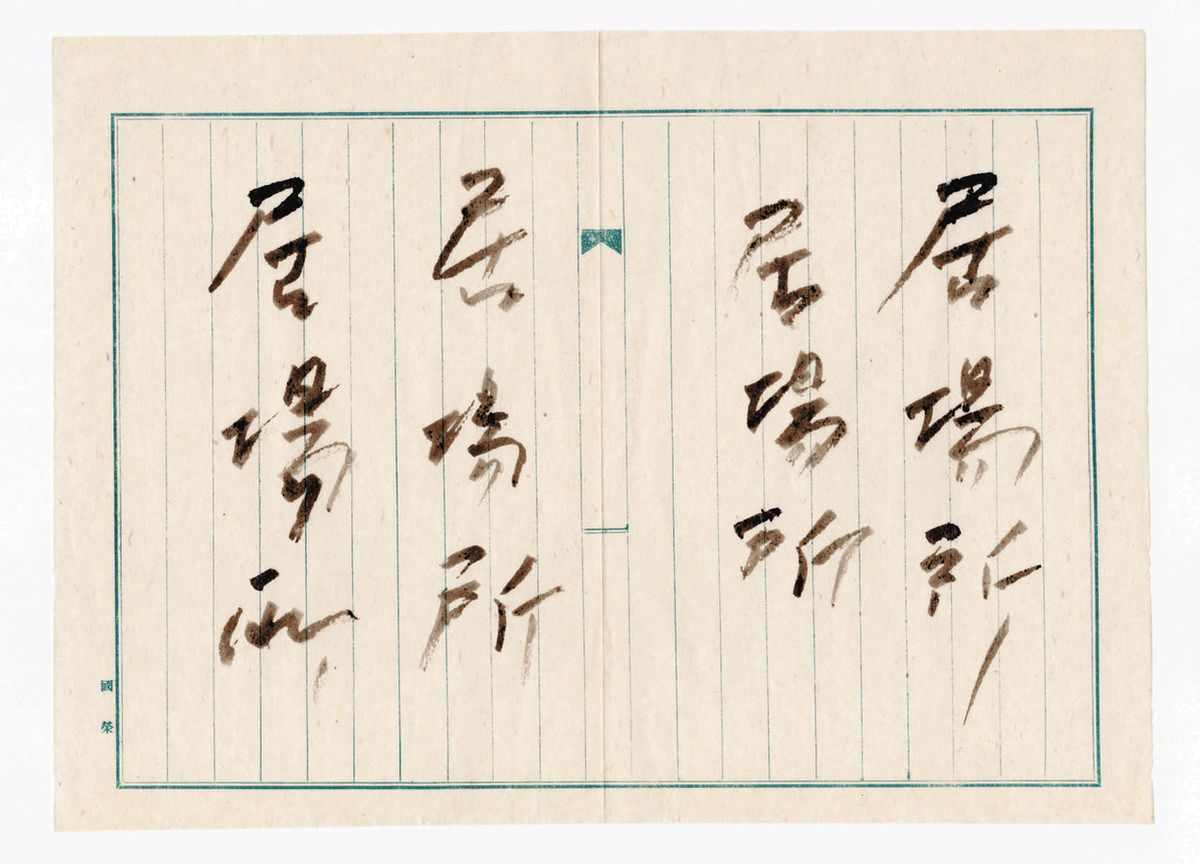 居場所
居場所
居場所
居場所
國榮